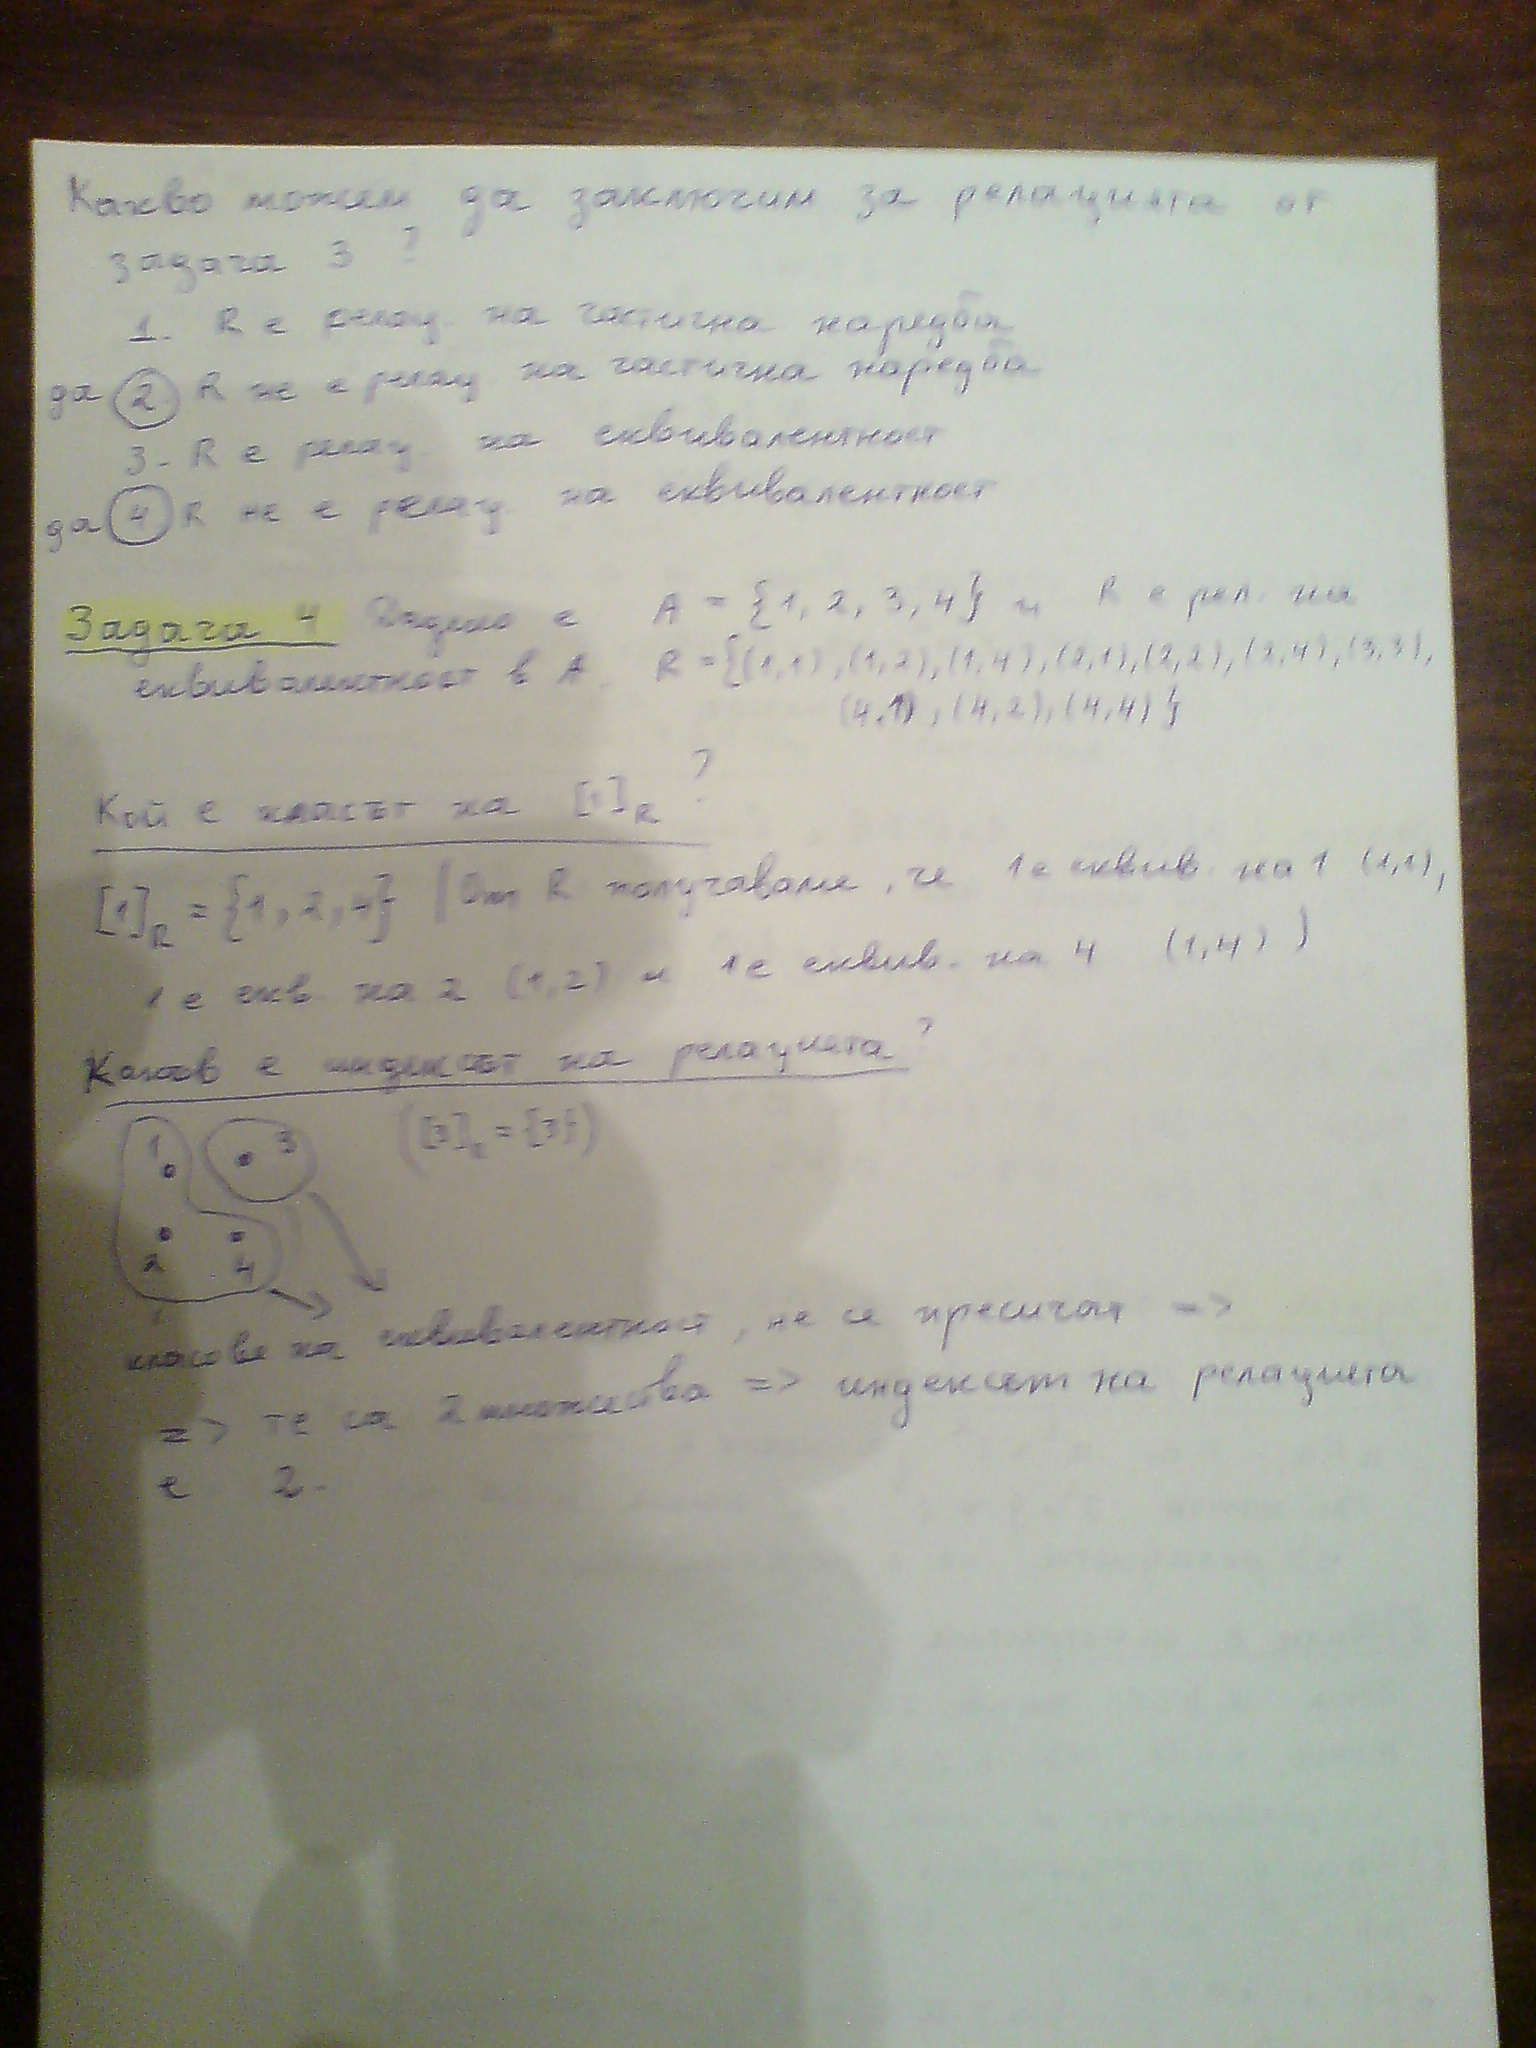 Какво можем да заключим за релацията от
задача 3 ?
1. R е релац. на частична наредба
да 2. R не е релац на частична наредба
3. R е релац. на еквивалентност
да 4 R не е релац. на еквивалентност
Задача 4 Дадено е A = {1, 2, 3, 4} и R е рел. на
еквивалентност в A. R = {(1,1), (1,2), (1,4), (2,1), (2,2), (2,4), (3,3),
(4,1), (4,2), (4,4)}
Кой е класът на [1]R ?
[1]R = {1, 2, 4} (От R получаваме, че 1 е еквив. на 1 (1,1),
1 е екв. на 2 (1,2) и 1 е еквив. на 4 (1,4) )
Какъв е индексът на релацията ?
1 3 ([3]R = {3})
2 4
класове на еквивалентност, не се пресичат =>
=> те са 2 множества => индексът на релацията
е 2.